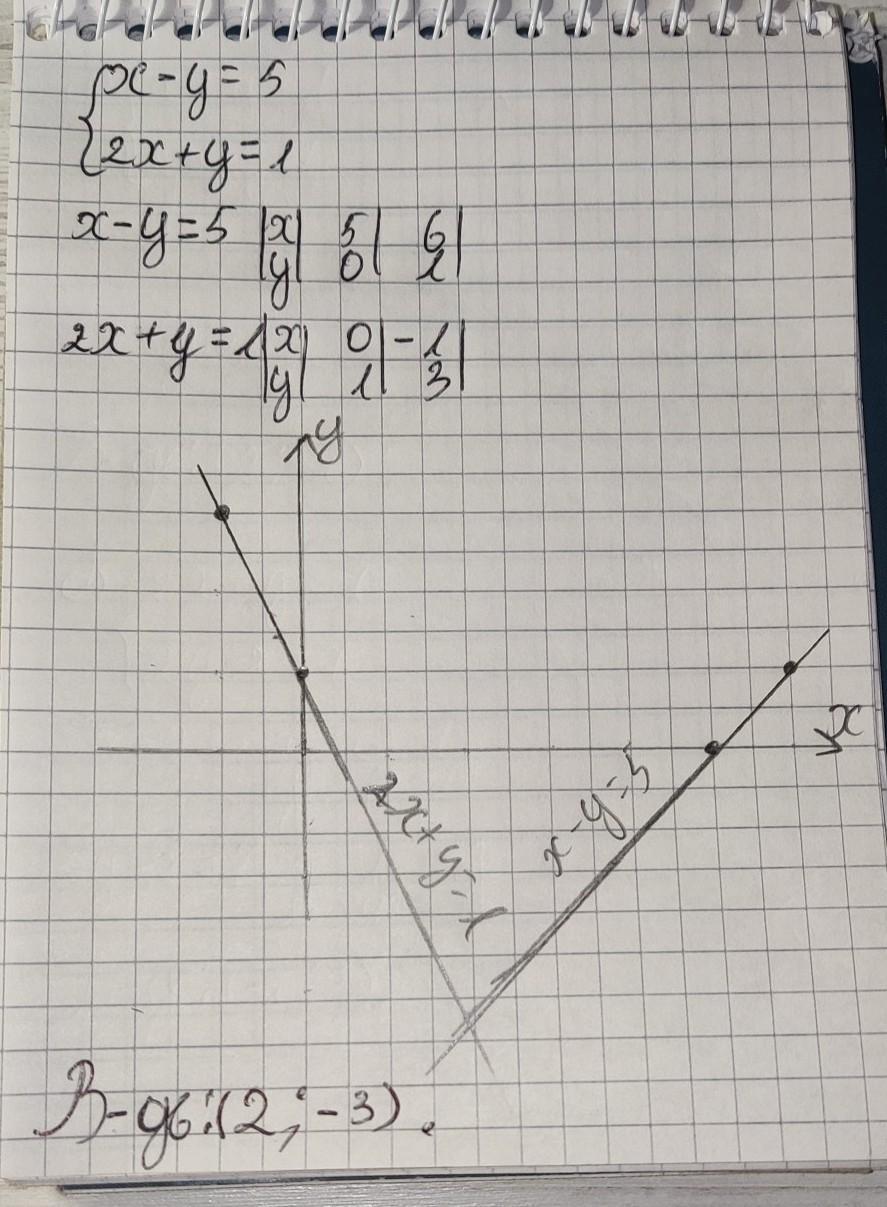 {x-y=5
{2x+y=1
x-y=5 |x| 5| 6|
|y| 0| 1|
2x+y=1|x| 0|-1|
|y| 1| 3|
y
x
2x+y=1
x-y=5
В-дь:(2;-3).